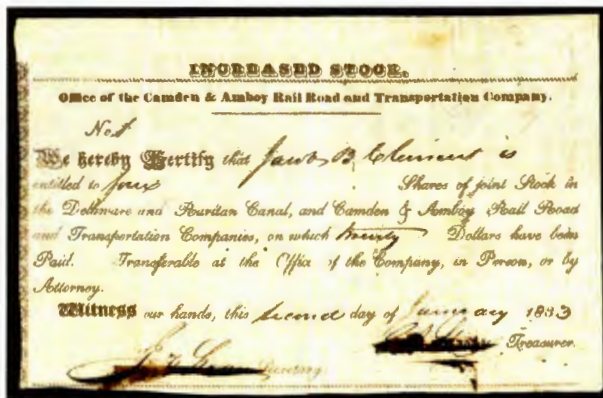 INCREASED STOCK.
Office of the Camden & Amboy Rail Road and Transportation Company.
No 1
We hereby Certify that Jacob B. Clement is
entitled to four Shares of joint Stock in
the Delaware and Raritan Canal, and Camden & Amboy Rail Road
and Transportation Companies, on which twenty Dollars have been
Paid. Transferable at the Office of the Company, in Person, or by
Attorney.
Witness our hands, this second day of January 1833
Treasurer.
Secretary.